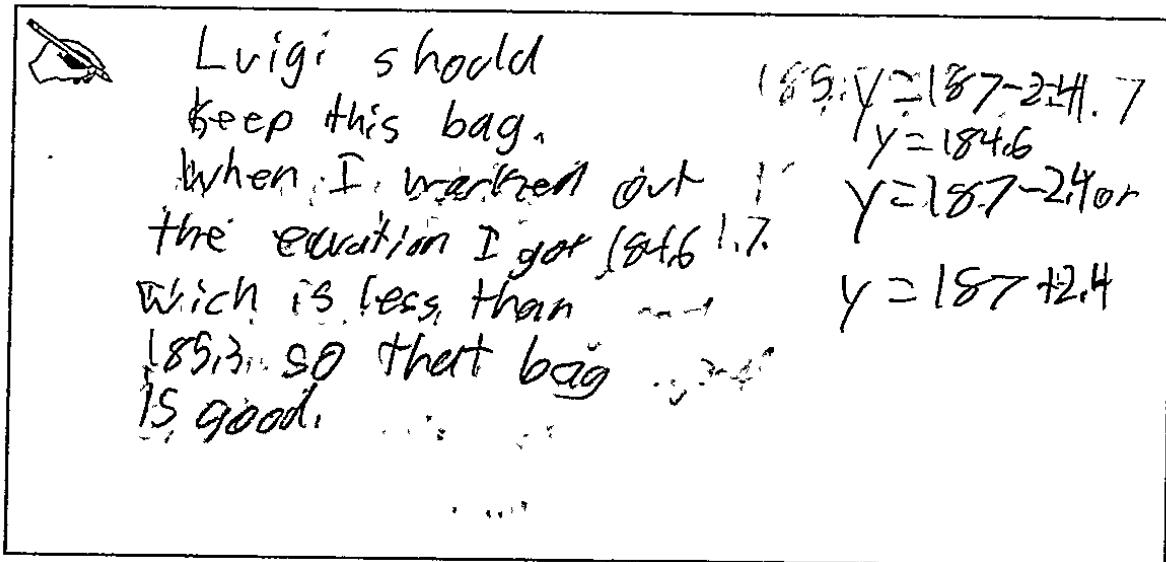 Luigi should
keep this bag.
When I worked out
the equation I got 184.6
wich is less than
185.3 so that bag
is good.
y = 187 - 2.4
y = 184.6
y = 187 - 2.4 or
y = 187 + 2.4